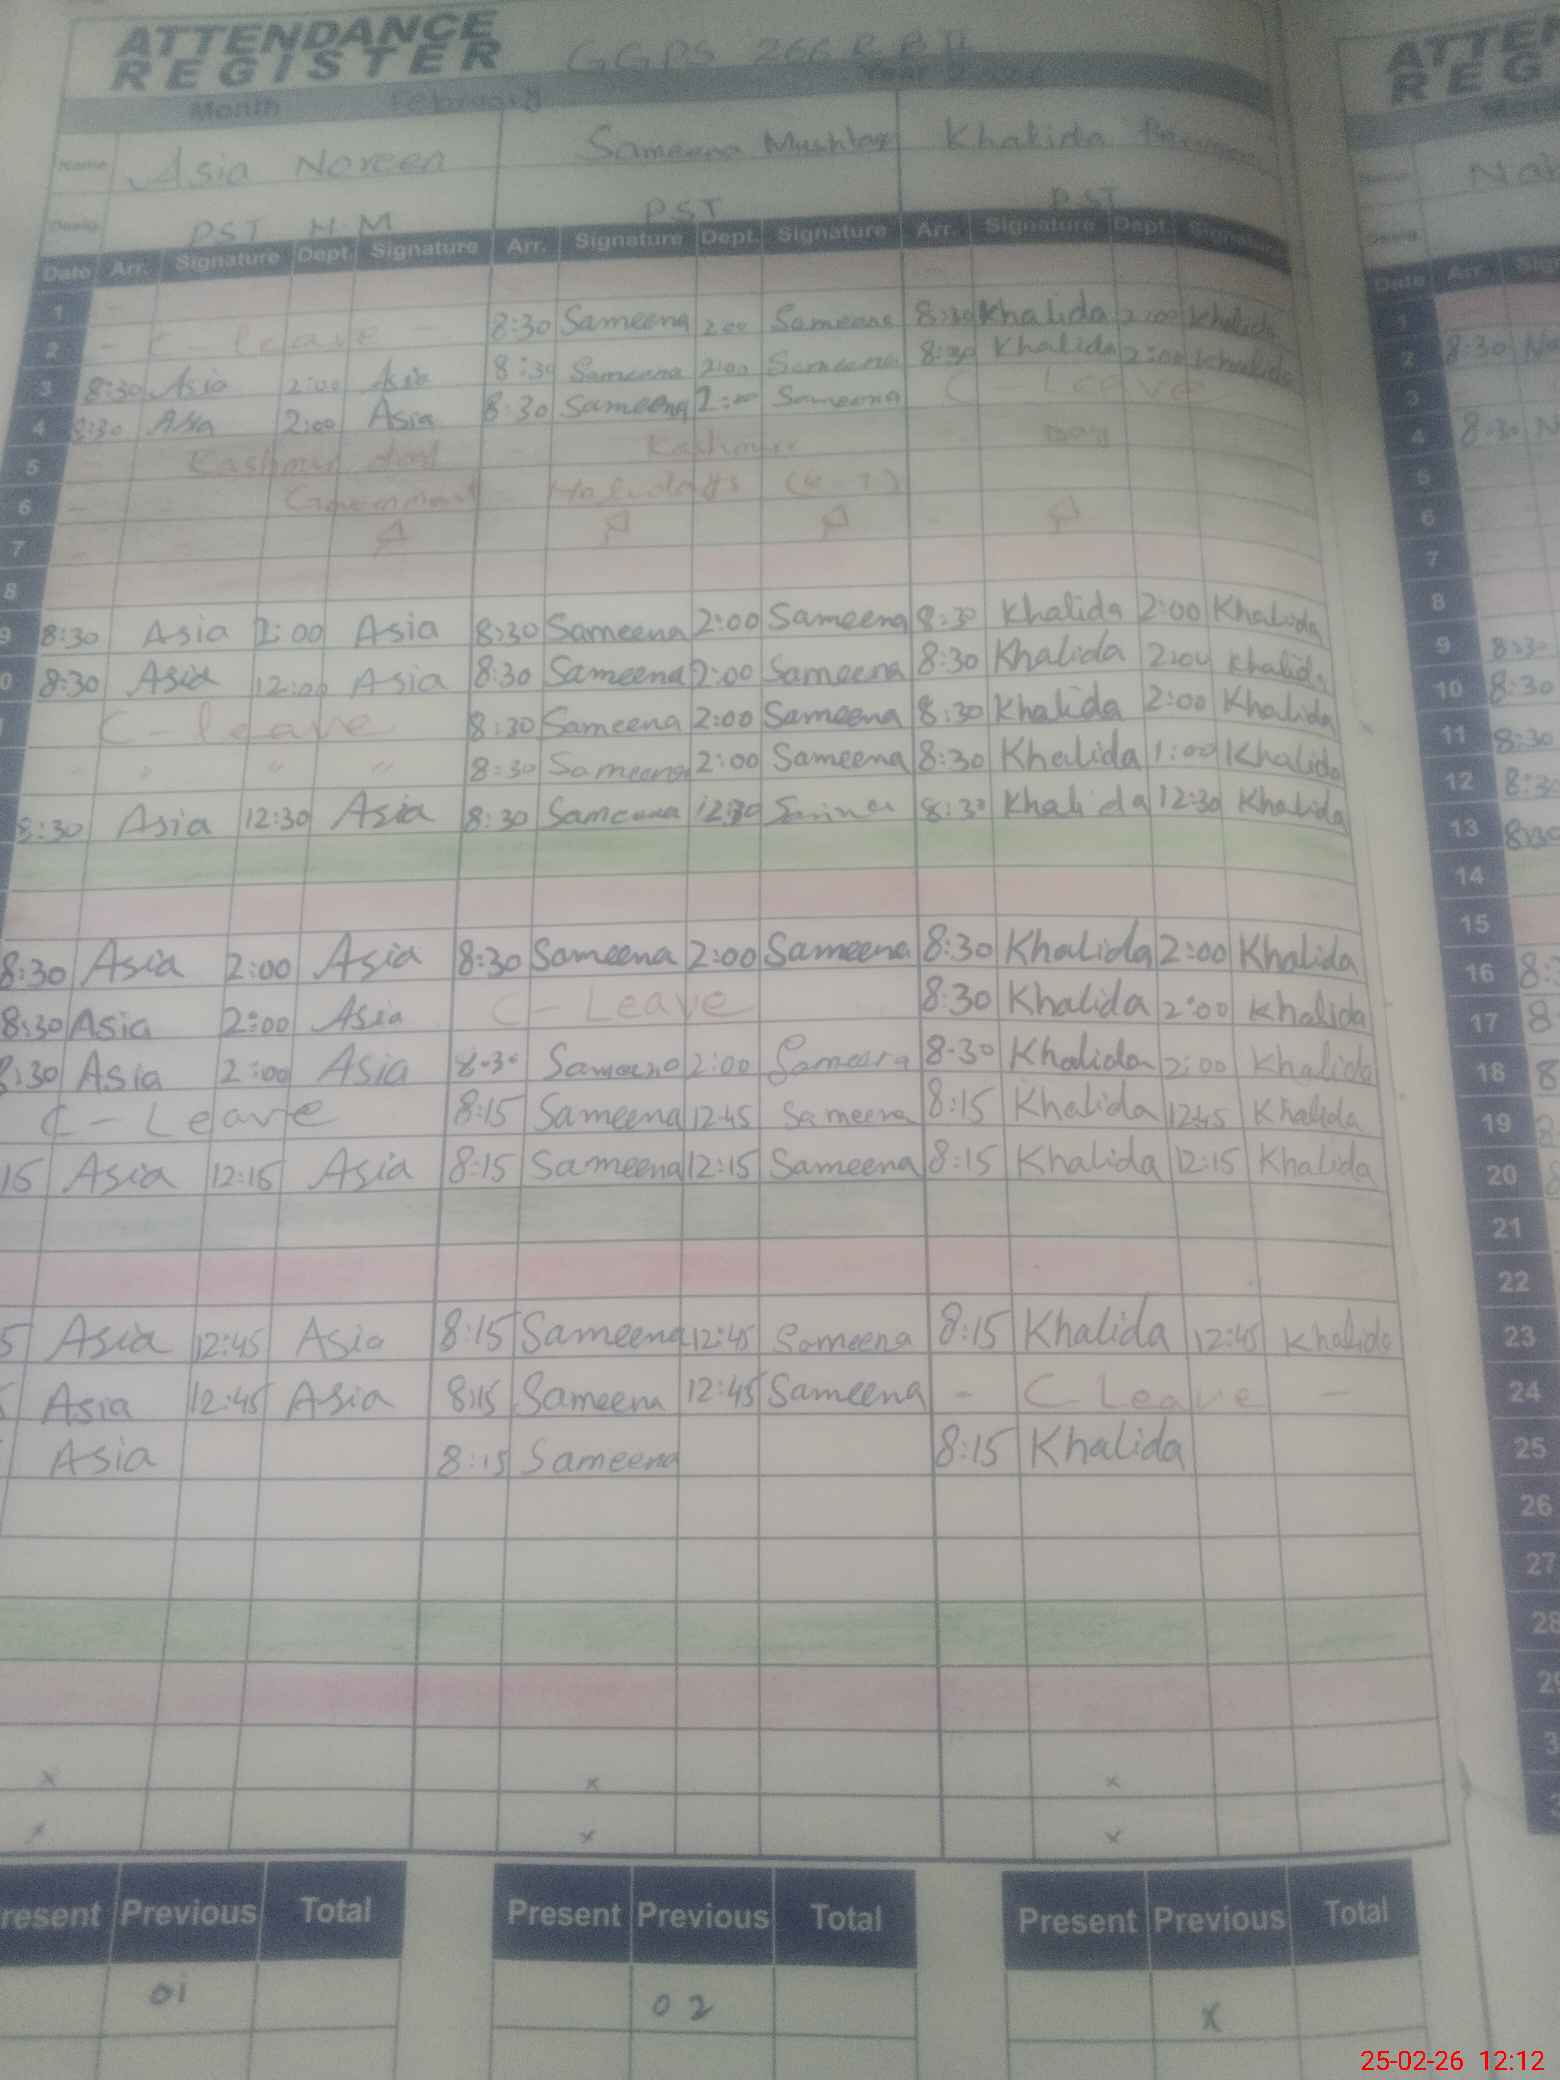 ATTENDANCE
REGISTER
GGPS 266 R B
Month February Year
Name Asia Noreen Sameena Mushtaq Khalida
Desig PST H.M PST PST
Date Arr. Signature Dept. Signature Arr. Signature Dept. Signature Arr. Signature Dept. Signature
1
2 - C - leave - 8:30 Sameena 2:00 Sameena 8:30 Khalida 2:00 Khalida
3 8:30 Asia 2:00 Asia 8:30 Sameena 2:00 Sameena 8:30 Khalida 2:00 Khalida
4 8:30 Asia 2:00 Asia 8:30 Sameena 2:00 Sameena C Leave
5 Kashmir day Kashmir Day
6 Government Holidays (6-7)
7
8
9 8:30 Asia 2:00 Asia 8:30 Sameena 2:00 Sameena 8:30 Khalida 2:00 Khalida
0 8:30 Asia 12:00 Asia 8:30 Sameena 2:00 Sameena 8:30 Khalida 2:00 Khalida
C - leave 8:30 Sameena 2:00 Sameena 8:30 Khalida 2:00 Khalida
" " " " 8:30 Sameena 2:00 Sameena 8:30 Khalida 1:00 Khalida
8:30 Asia 12:30 Asia 8:30 Sameena 12:30 8:30 Khalida 12:30 Khalida
8:30 Asia 2:00 Asia 8:30 Sameena 2:00 Sameena 8:30 Khalida 2:00 Khalida
8:30 Asia 2:00 Asia C - Leave 8:30 Khalida 2:00 Khalida
8:30 Asia 2:00 Asia 8-30 Sameena 2:00 Sameena 8-30 Khalida 2:00 Khalida
C - Leave 8:15 Sameena 12:45 Sameena 8:15 Khalida 12:45 Khalida
15 Asia 12:15 Asia 8:15 Sameena 12:15 Sameena 8:15 Khalida 12:15 Khalida
5 Asia 12:45 Asia 8:15 Sameena 12:45 Sameena 8:15 Khalida 12:45 Khalida
Asia 12:45 Asia 8:15 Sameena 12:45 Sameena - C Leave -
Asia 8:15 Sameena 8:15 Khalida
x x x
x x x
resent Previous Total Present Previous Total Present Previous Total
01 02 x
ATTEN
REG
Date Arr.
1
2 8:30
3
4 8:30 N
5
6
7
8
9 8:30
10 8:30
11 8:30
12 8:30
13 8:30
14
15
16 8:
17 8
18 8
19 8
20 8
21
22
23
24
25
26
27
28
25-02-26 12:12